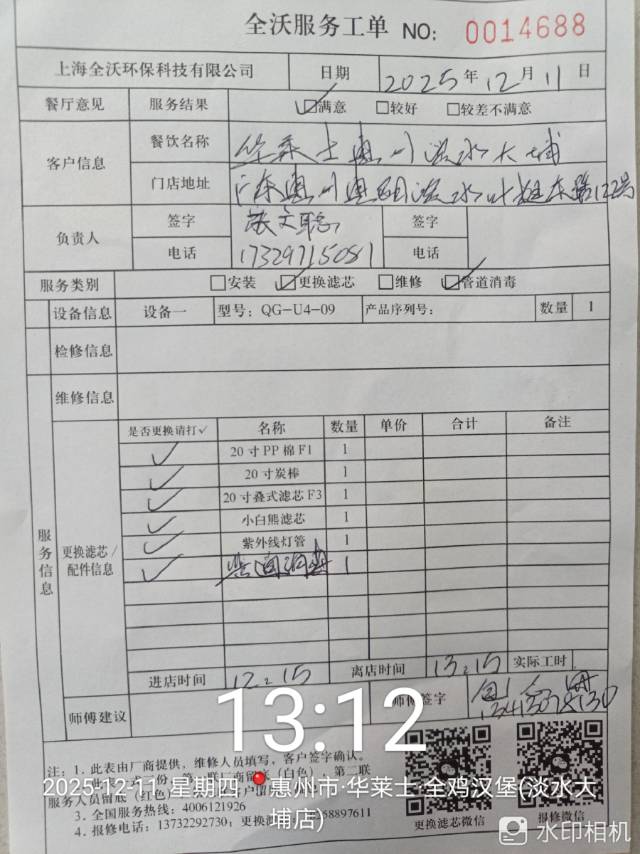 全沃服务工单 NO: 0014688
上海全沃环保科技有限公司 日期 2025年12月11日
餐厅意见 服务结果 ☑满意 □较好 □较差不满意
客户信息 餐饮名称 华莱士惠州淡水大埔
门店地址 广东惠州惠阳淡水叶挺东路122号
负责人 签字 签字
电话 17329715081 电话
服务类别 □安装 ☑更换滤芯 □维修 ☑管道消毒
设备信息 设备一 型号: QG-U4-09 产品序列号: 数量 1
检修信息
维修信息
服务信息
更换滤芯/配件信息
是否更换请打✓ 名称 数量 单价 合计 备注
✓ 20寸PP棉F1 1
✓ 20寸炭棒 1
✓ 20寸叠式滤芯F3 1
✓ 小白熊滤芯 1
✓ 紫外线灯管 1
✓ 管道消毒 1
进店时间 12:15 离店时间 13:15 实际工时
师傅建议 师傅签字
13:12
注: 1. 此表由厂商提供, 维修人员填写, 客户签字确认。
2025-12-11 星期四 惠州市·华莱士·全鸡汉堡(淡水大埔店)
服务人员留底(红色)
3. 全国服务热线: 4006121926
4. 报修电话: 13732292730; 更换滤
更换滤芯微信 报修微信
水印相机